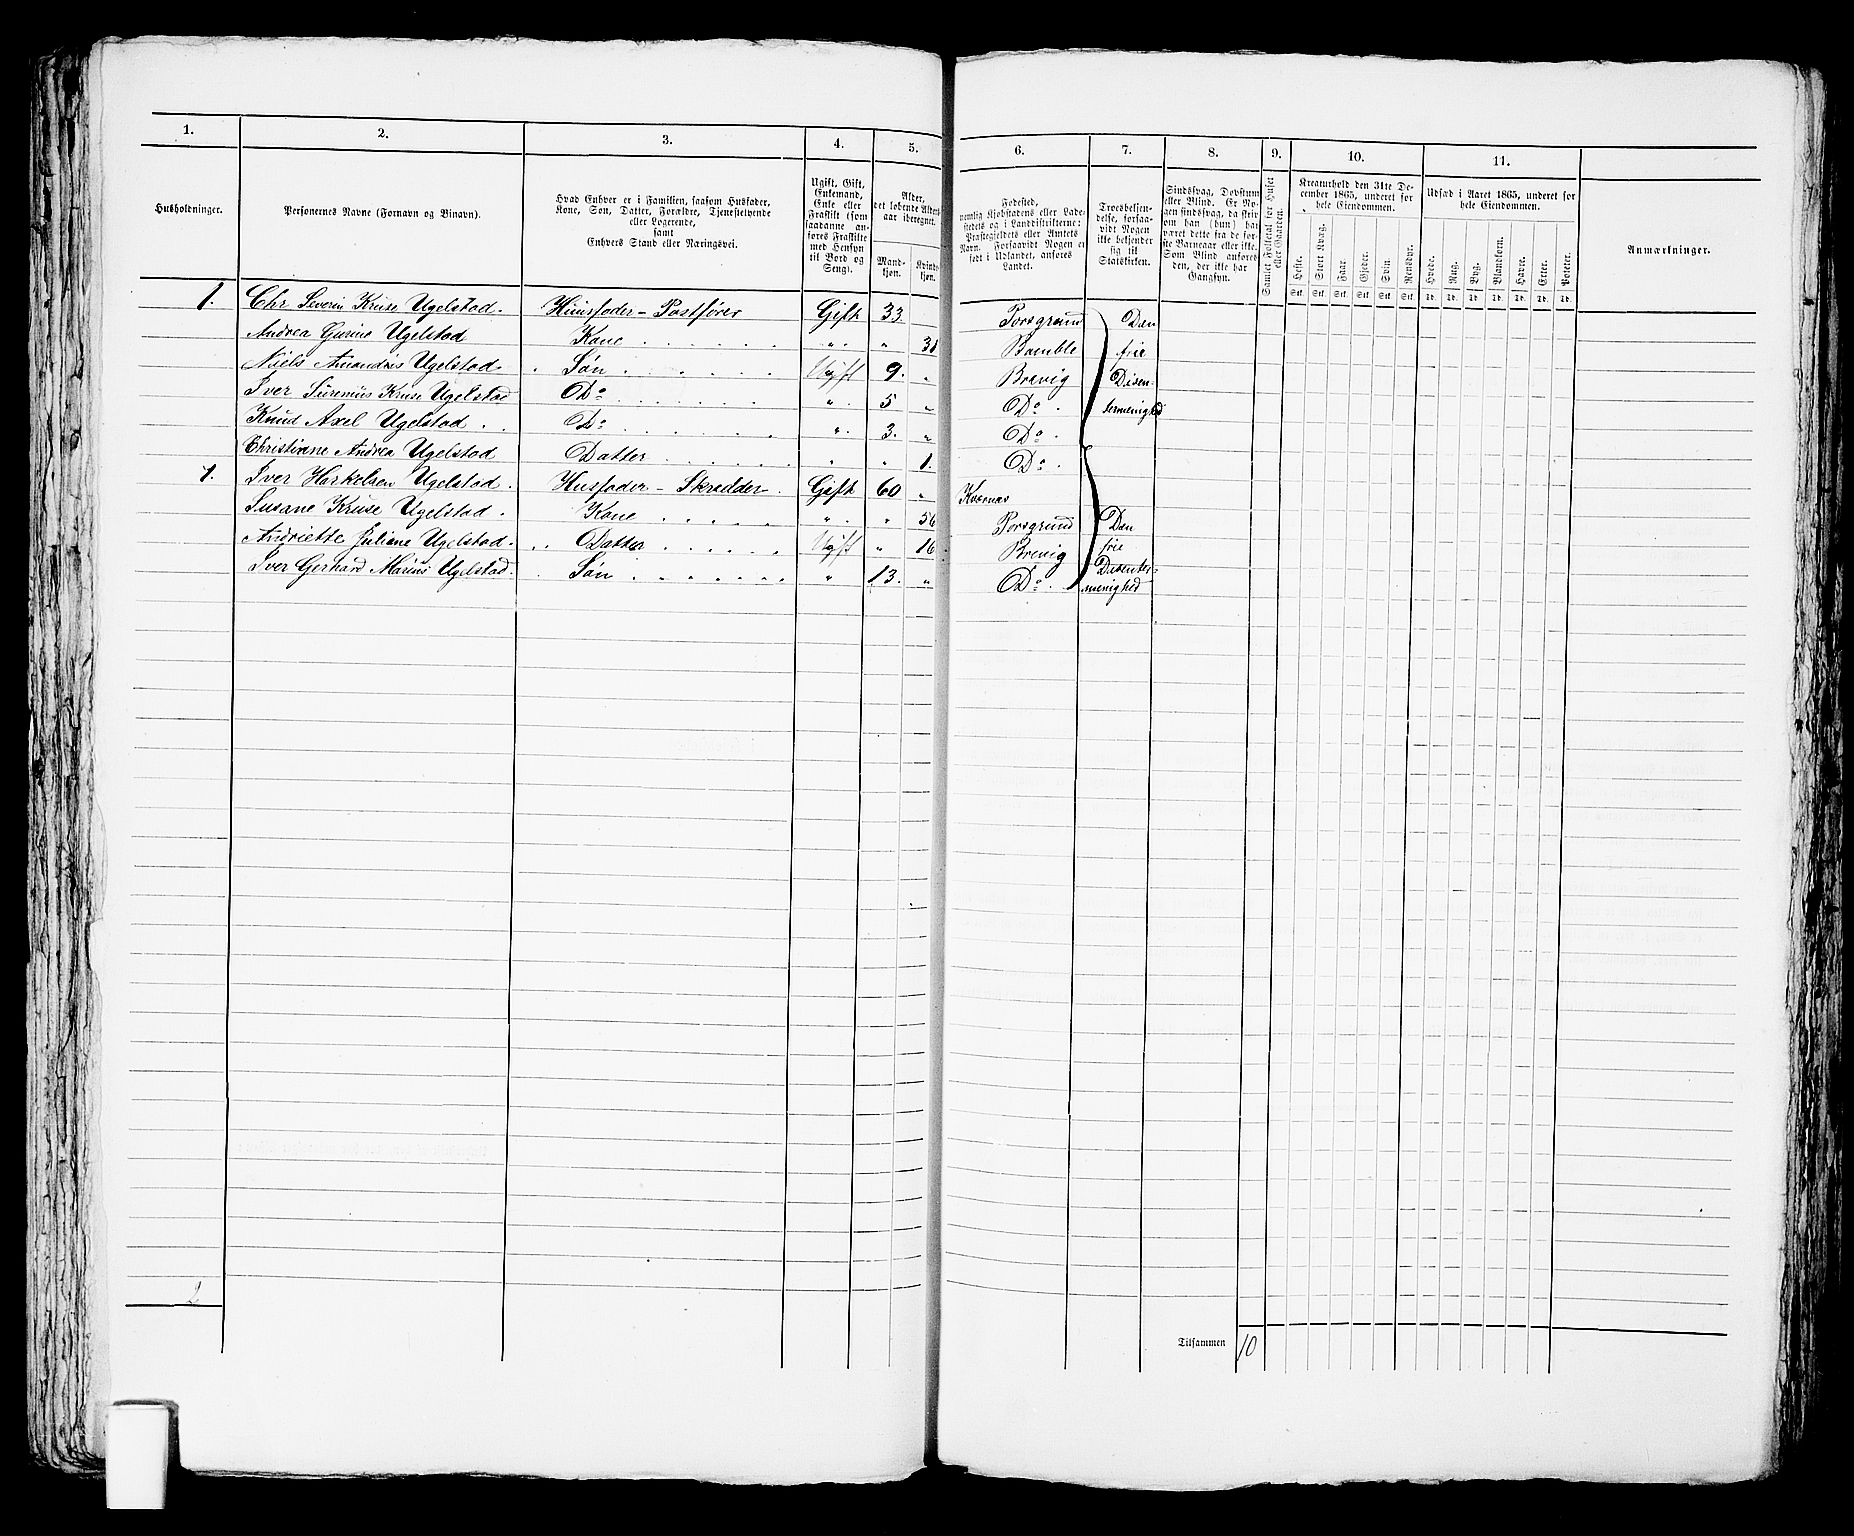 1. 2. 3. 4. 5. 6. 7. 8. 9. 10. 11.
Husholdninger.
Personernes Navne (Fornavn og Binavn).
Hvad Enhver er i Familien, saasom Husfader,
Kone, Søn, Datter, Forældre, Tjenestetyende
eller Logerende,
samt
Enhvers Stand eller Næringsvei.
Ugift, Gift,
Enkemand,
Enke eller
Fraskilt (som
saadanne an-
føres Fraskilte
med Hensyn
til Bord og
Seng).
Alder,
det løbende Alders-
aar iberegnet.
Mand-
kjøn.
Kvinde-
kjøn.
Fødested,
nemlig Kjøbstadens eller Lade-
stedets og i Landdistrikterne:
Præstegjeldets eller Amtets
Navn. Forsaavidt Nogen er
født i Udlandet, anføres
Landet.
Troesbekjen-
delse, forsaa-
vidt Nogen
ikke bekjender
sig til
Statskirken.
Sindssvag, Døvstum
eller Blind. Er No-
gen sindssvag, da skri-
ves om han (hun) har
været dette fra de før-
ste Barneaar eller ikke.
Som Blind anføres
den, der ikke har
Gangsyn.
Samlet Folketal for Huset
eller Gaarden.
Kreaturhold den 31te De-
cember 1865, underet for
hele Eiendommen.
Heste. Stort Kvæg. Faar. Gjeder. Svin. Rensdyr.
Stk. Stk. Stk. Stk. Stk. Stk.
Udsæd i Aaret 1865, underet for
hele Eiendommen.
Hvede. Rug. Byg. Blandkorn. Havre. Erter. Poteter.
Td. Td. Td. Td. Td. Td. Td.
Anmærkninger.
1. Chr Severin Kruse Ugelstad. Huusfader - Postfører Gift 33. Porsgrund Den
Andrea Gurine Ugelstad Kone " " Bamble frie
Niels Amandus Ugelstad Søn Ugift 9. " Brevig Disen-
Iver Surenius Kruse Ugelstad Do " 5 " Do termenighed
Knud Axel Ugelstad Do " 3. " Do
Christiane Andrea Ugelstad Datter " " 1. Do
1. Iver Harkelsen Ugelstad. Husfader - Skrædder Gift 60 " Kvernæs
Susane Kruse Ugelstad. Kone " " 56 Porsgrund Den
Andriette Juliane Ugelstad. Datter Ugift " 16 Brevig frie
Iver Gerhard Marius Ugelstad. Søn " 13. " Do Disenter-
menighed
2
Tilsammen 10